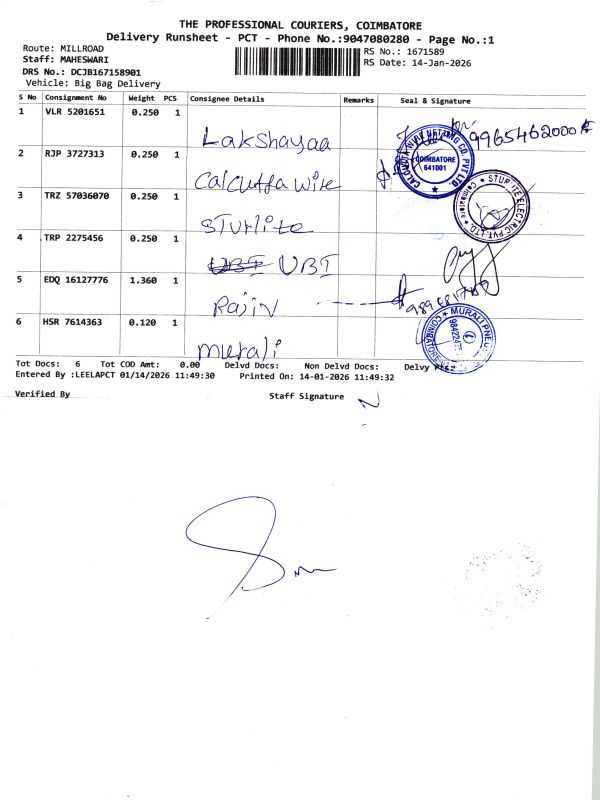 THE PROFESSIONAL COURIERS, COIMBATORE
Delivery Runsheet - PCT - Phone No.:9047080280 - Page No.:1
Route: MILLROAD
Staff: MAHESWARI
DRS No.: DCJB167158901
Vehicle: Big Bag Delivery
RS No.: 1671589
RS Date: 14-Jan-2026
S No Consignment No Weight PCS Consignee Details Remarks Seal & Signature
1 VLR 5201651 0.250 1 Lakshayaa 9965462000
2 RJP 3727313 0.250 1 Calcutta wire CALCUTTA WIRE NETTING CO. PVT. LTD. COIMBATORE 641001
3 TRZ 57036070 0.250 1 Sturlite STURLITE ELECTRIC PVT. LTD. Coimbatore
4 TRP 2275456 0.250 1 UBI UBI
5 EDQ 16127776 1.360 1 Rajiv
6 HSR 7614363 0.120 1 murali MURALI
Tot Docs: 6 Tot COD Amt: 0.00 Delvd Docs: Non Delvd Docs: Delvy
Entered By :LEELAPCT 01/14/2026 11:49:30 Printed On: 14-01-2026 11:49:32
Verified By Staff Signature